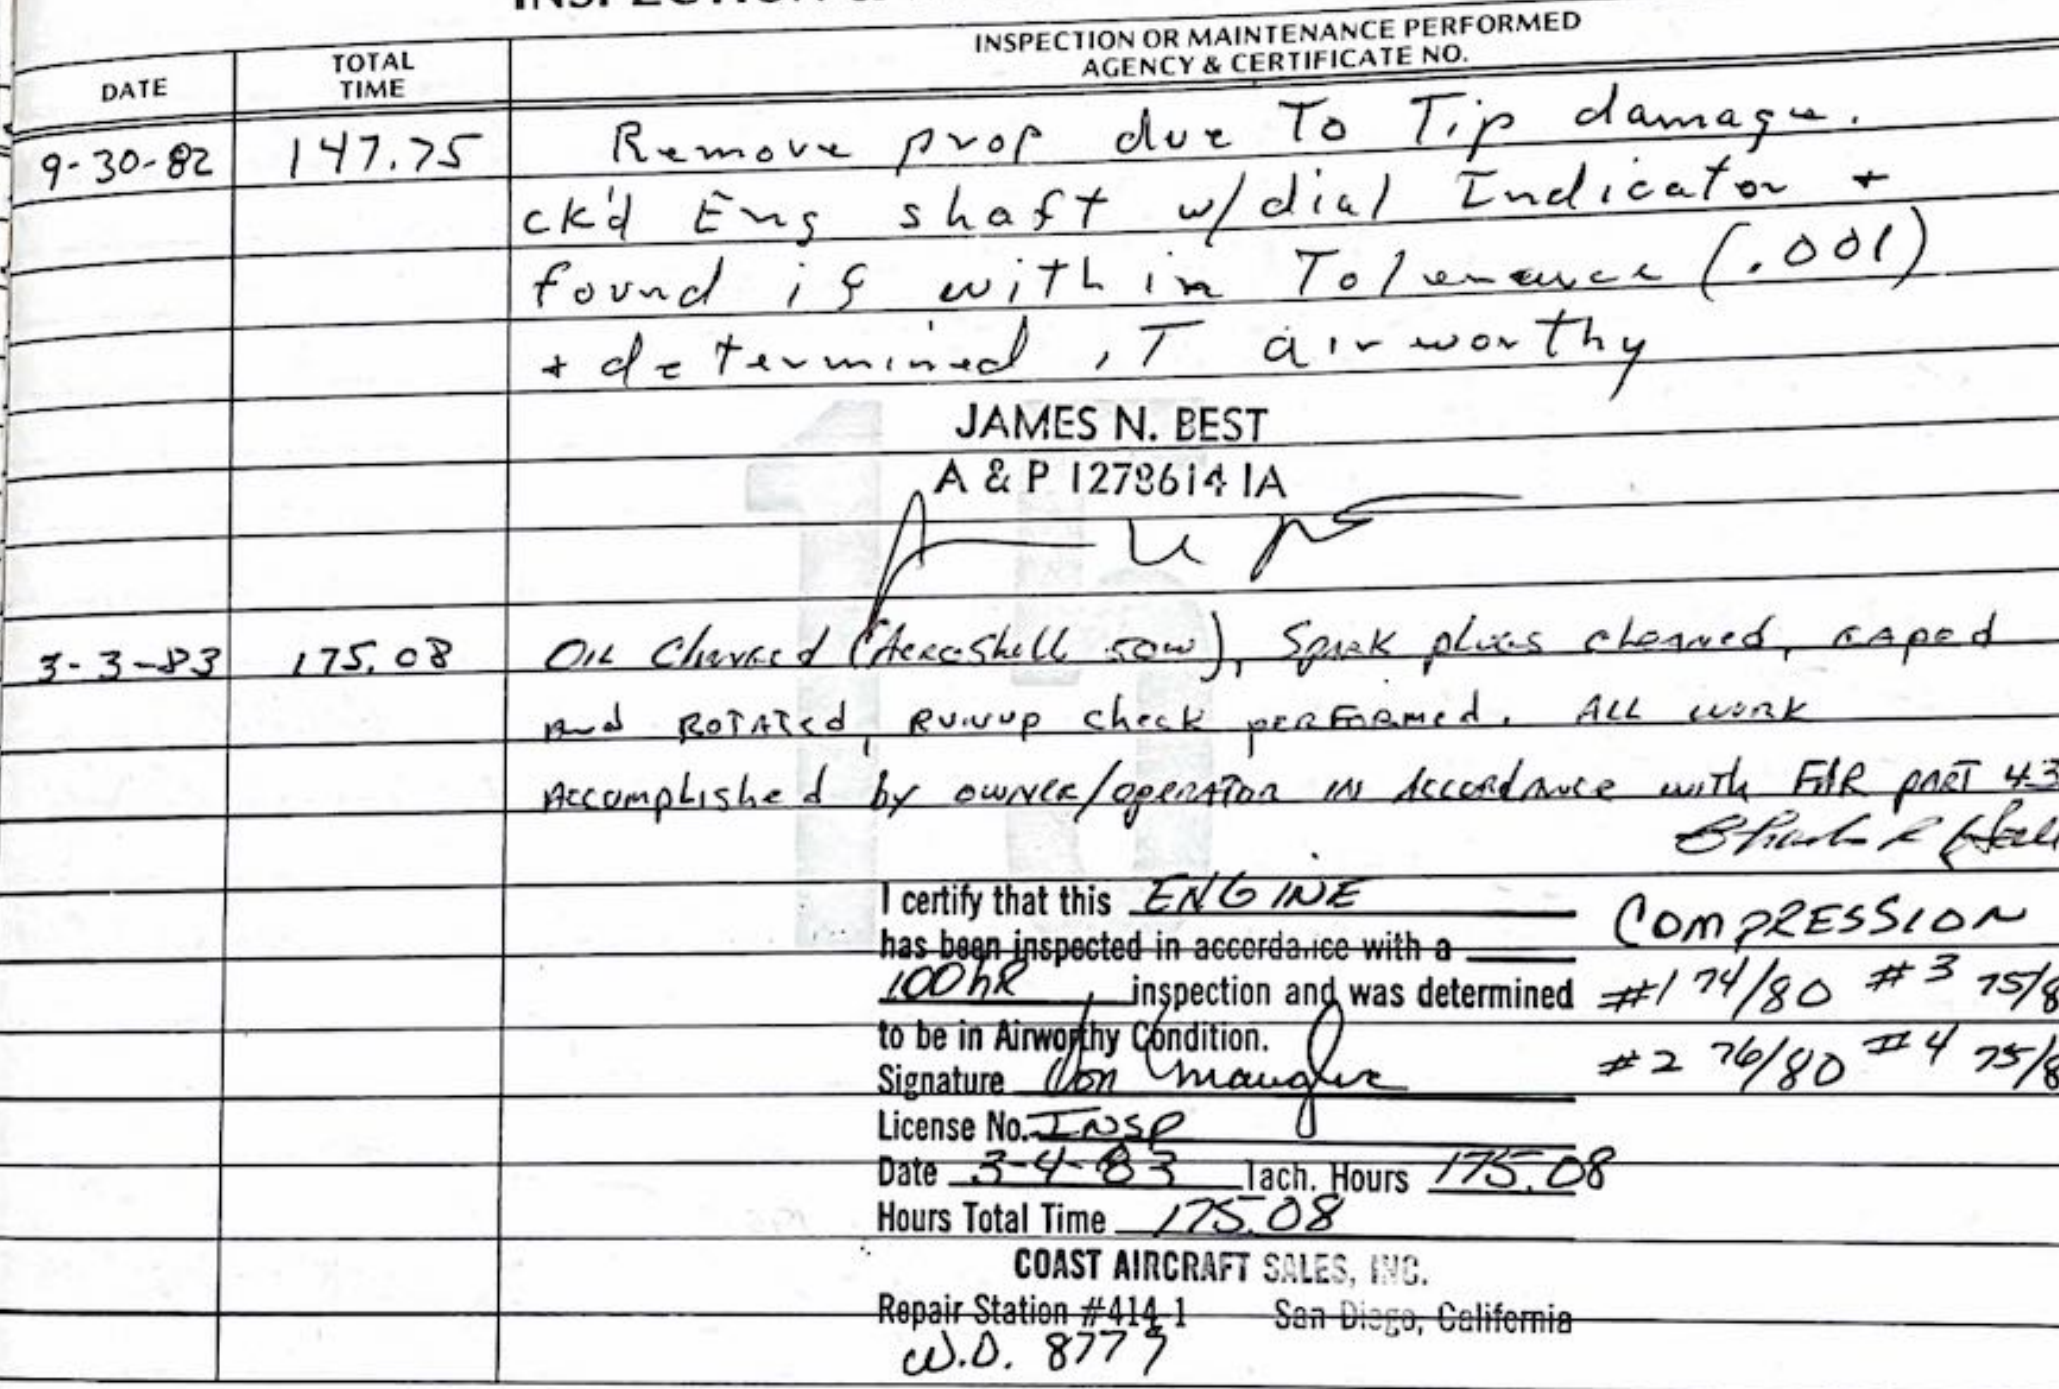 INSPECTION &
DATE
TOTAL TIME
INSPECTION OR MAINTENANCE PERFORMED
AGENCY & CERTIFICATE NO.
9-30-82 147.75 Remove prop due To Tip damage.
ck'd Eng shaft w/dial Indicator +
found is within Tolerance (.001)
+ determined iT airworthy
JAMES N. BEST
A & P 1278614 IA
3-3-83 175.08 OIL Changed (AeroShell 50W), Spark plugs cleaned, gaped
And ROTATEd, RUNUP check perFormed. ALL work
Accomplished by owner/operator IN Accordance with FAR PART 43
I certify that this ENGINE
has been inspected in accordance with a
100hR inspection and was determined
to be in Airworthy Condition.
Signature Don
License No. INSP
Date 3-4-83 Tach. Hours 175.08
Hours Total Time 175.08
COMPRESSION
#1 74/80 #3 75/8
#2 76/80 #4 75/8
COAST AIRCRAFT SALES, INC.
Repair Station #414-1 San Diego, California
W.O. 8779